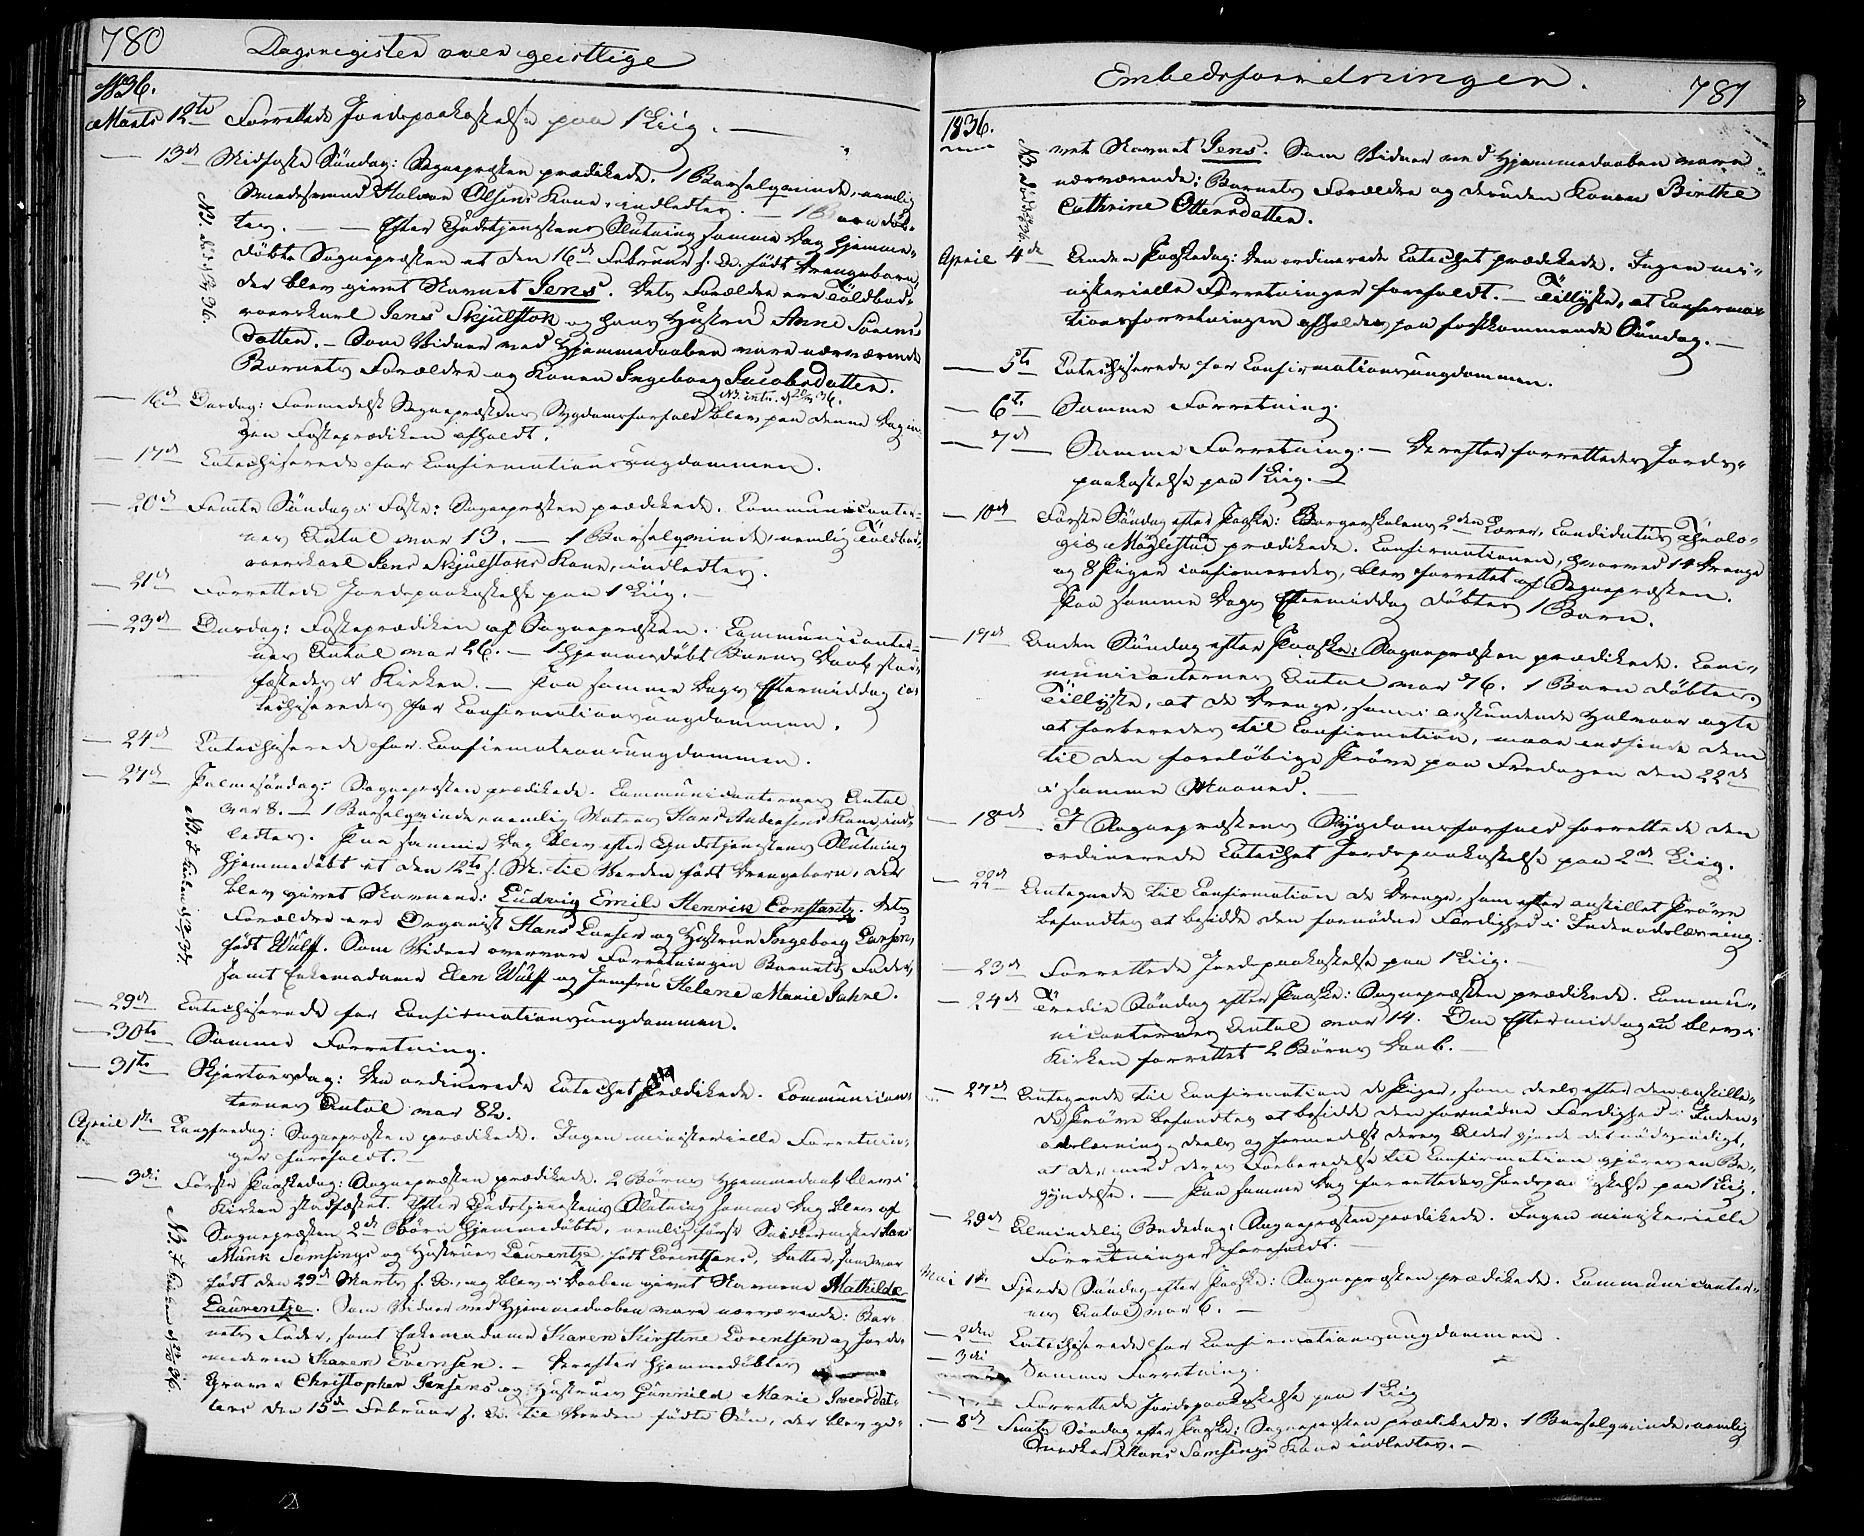 780 Dagsregister over geistlige
1836.
Marts 12te Forrettede Jordspaakastelse paa 1 Liig. —
— 13de Midfaste Söndag: Sognepræsten prædikede. 1 Barselqvinde, nemlig
Smedesvend Halvor Olsens Kone, indledtes. — 1 Barn döb-
tes. — Efter Gudstjenestens Slutning samme Dag hjemme-
döbte Sognepræsten et den 16de Februar s. A. födt Drengebarn,
der blev givet Navnet Jens. Dets Forældre ere Toldbod-
roerskarl Jens Skjulstok og hans Hustru Anne Sörens-
datter. — Som Vidner ved Hjemmedaaben vare nærværende
Barnets Forældre og Konen Ingeborg Jacobsdatter.
NB. intr. d. 20/3 36.
— 16de Onsdag: Formedelst Sognepræstens Sygdomsforfald blev paa denne Dag in-
gen Fasteprædiken afholdt.
— 17de Catechiserede for Confirmationsungdommen.
— 20de Femte Söndag i Faste: Sognepræsten prædikede. Communicanter-
nes Antal var 13. — 1 Barselqvinde, nemlig Toldbod-
roerskarl Jens Skjulstoks Kone, indledtes.
— 21de Forrettede Jordspaakastelse paa 1 Liig. —
— 23de Onsdag: Fasteprædiken af Sognepræsten. Communicanter-
nes Antal var 26. — 1 hjemmedöbt Barns Daab stad-
fæstedes i Kirken. — Paa samme Dags Eftermiddag ca-
techiseredes for Confirmationsungdommen.
— 24de Catechiserede for Confirmationsungdommen.
— 27de Palmesöndag: Sognepræsten prædikede. Communicanternes Antal
var 8. — 1 Barselqvinde, nemlig Matros Hans Andersens Kone, ind-
ledtes. Paa samme Dag blev efter Gudstjenestens Slutning
hjemmedöbt et den 12te s. M. til Verden födt Drengebarn, der
blev givet Navnene: Ludvig Emil Henrik Constantz. Dets
Forældre ere Organist Hans Larsen og Hustru Ingeborg Larsen,
födt Wulff. Som Vidner overvare Forretningen Barnets Fader,
samt Enkemadame Elen Wulff og Jomfru Helene Marie Jahne.
— 29de Catechiserede for Confirmationsungdommen.
— 30te Samme Forretning.
— 31te Skjertorsdag: Den ordinerede Catechet prædikede. Communican-
ternes Antal var 82.
April 1ste Langfredag: Sognepræsten prædikede. Ingen ministerielle Forretnin-
ger forefaldt. —
— 3die Förste Paaskedag: Sognepræsten prædikede. 2 Börns Hjemmedaab blev i
Kirken stadfæstet. Efter Gudstjenestens Slutning samme Dag blev af
Sognepræsten 2de Börn hjemmedöbte, nemlig först Snedkermester Hans
Munk Semsings og Hustrues Laurentze, födt Lorentsens, Datter, som var
födt den 29de Marts s. A., og blev i Daaben givet Navnene Mathilde
Laurentze. Som Vidner ved Hjemmedaaben vare nærværende: Bar-
nets Fader, samt Enkemadame Karen Kirstine Lorentsen og Jorde-
moderen Karen Evensen. — Derefter hjemmedöbtes
Christopher Jensens og Hustrues Gunnild Marie Iversdat-
ters den 15de Februar s. A. til Verden födte Sön, der blev gi-
Embedsforretninger. 781
1836.
vet Navnet Jens. Som Vidner ved Hjemmedaaben vare
nærværende: Barnets Forældre og desuden Konen Birthe
Cathrine Ottersdatter.
April 4de Anden Paaskedag: Den ordinerede Catechet prædikede. Ingen mi-
nisterielle Forretninger forefaldt. — Tillyste, at Confirma-
tionsforretningen afholdes paa förstkommende Söndag. —
— 5te Catechiserede for Confirmationsungdommen.
— 6te Samme Forretning.
— 7de Samme Forretning. — Derefter forrettedes Jords-
paakastelse paa 1 Liig. —
— 10de Förste Söndag efter Paaske: Borgerskolens 2den Lærer, Candidatus Theolo-
giæ Möglestad prædikede. Confirmationen, hvorved 14 Drenge
og 8 Piger confirmeredes, blev forrettet af Sognepræsten.
Paa samme Dags Eftermiddag döbtes 1 Barn.
— 17de Anden Söndag efter Paaske: Sognepræsten prædikede. Com-
municanternes Antal var 76. 1 Barn döbtes.
Tillyste, at de Drenge, som i anstundende Halvaar agte
at forberedes til Confirmation, maae indfinde dem
til den foreløbige Pröve paa Fredagen den 22de
i samme Maaned. —
— 18de I Sognepræstens Sygdomsforfald forrettede den
ordinerede Catechet Jordspaakastelse paa 2de Liig.
— 22de Antegnede til Confirmation de Drenge, som efter anstillet Pröve
befandtes at besidde den fornödne Færdighed i Indenadslæsning.
— 23de Forrettede Jordspaakastelse paa 1 Liig. —
— 24de Tredie Söndag efter Paaske: Sognepræsten prædikede. Commu-
nicanternes Antal var 14. Om Eftermiddagen blev i
Kirken forrettet 2 Börns Daab. —
— 27de Antegnede til Confirmation de Piger, som deels efter den anstille-
de Pröve befandtes at besidde den fornödne Færdighed i Inden-
adslæsning, deels og formedelst deres Alder gjorde det nödvendigt,
at der med deres Forberedelse til Confirmation gjöres en Be-
gyndelse. — Paa samme Dag forrettedes Jordspaakastelse paa 1 Liig.
— 29de Almindelig Bededag: Sognepræsten prædikede. Ingen ministerielle
Forretninger forefaldt. —
Mai 1ste Fjerde Söndag efter Paaske: Sognepræsten prædikede. Communicanter-
nes Antal var 6. —
— 2den Catechiserede for Confirmationsungdommen.
— 3die Samme Forretning.
Forrettede Jordspaakastelse paa 1 Liig
— 8de Femte Söndag efter Paaske: Sognepræsten prædikede. 1 Barselqvinde, nemlig
Snedker Hans Semsings Kone indledtes. —